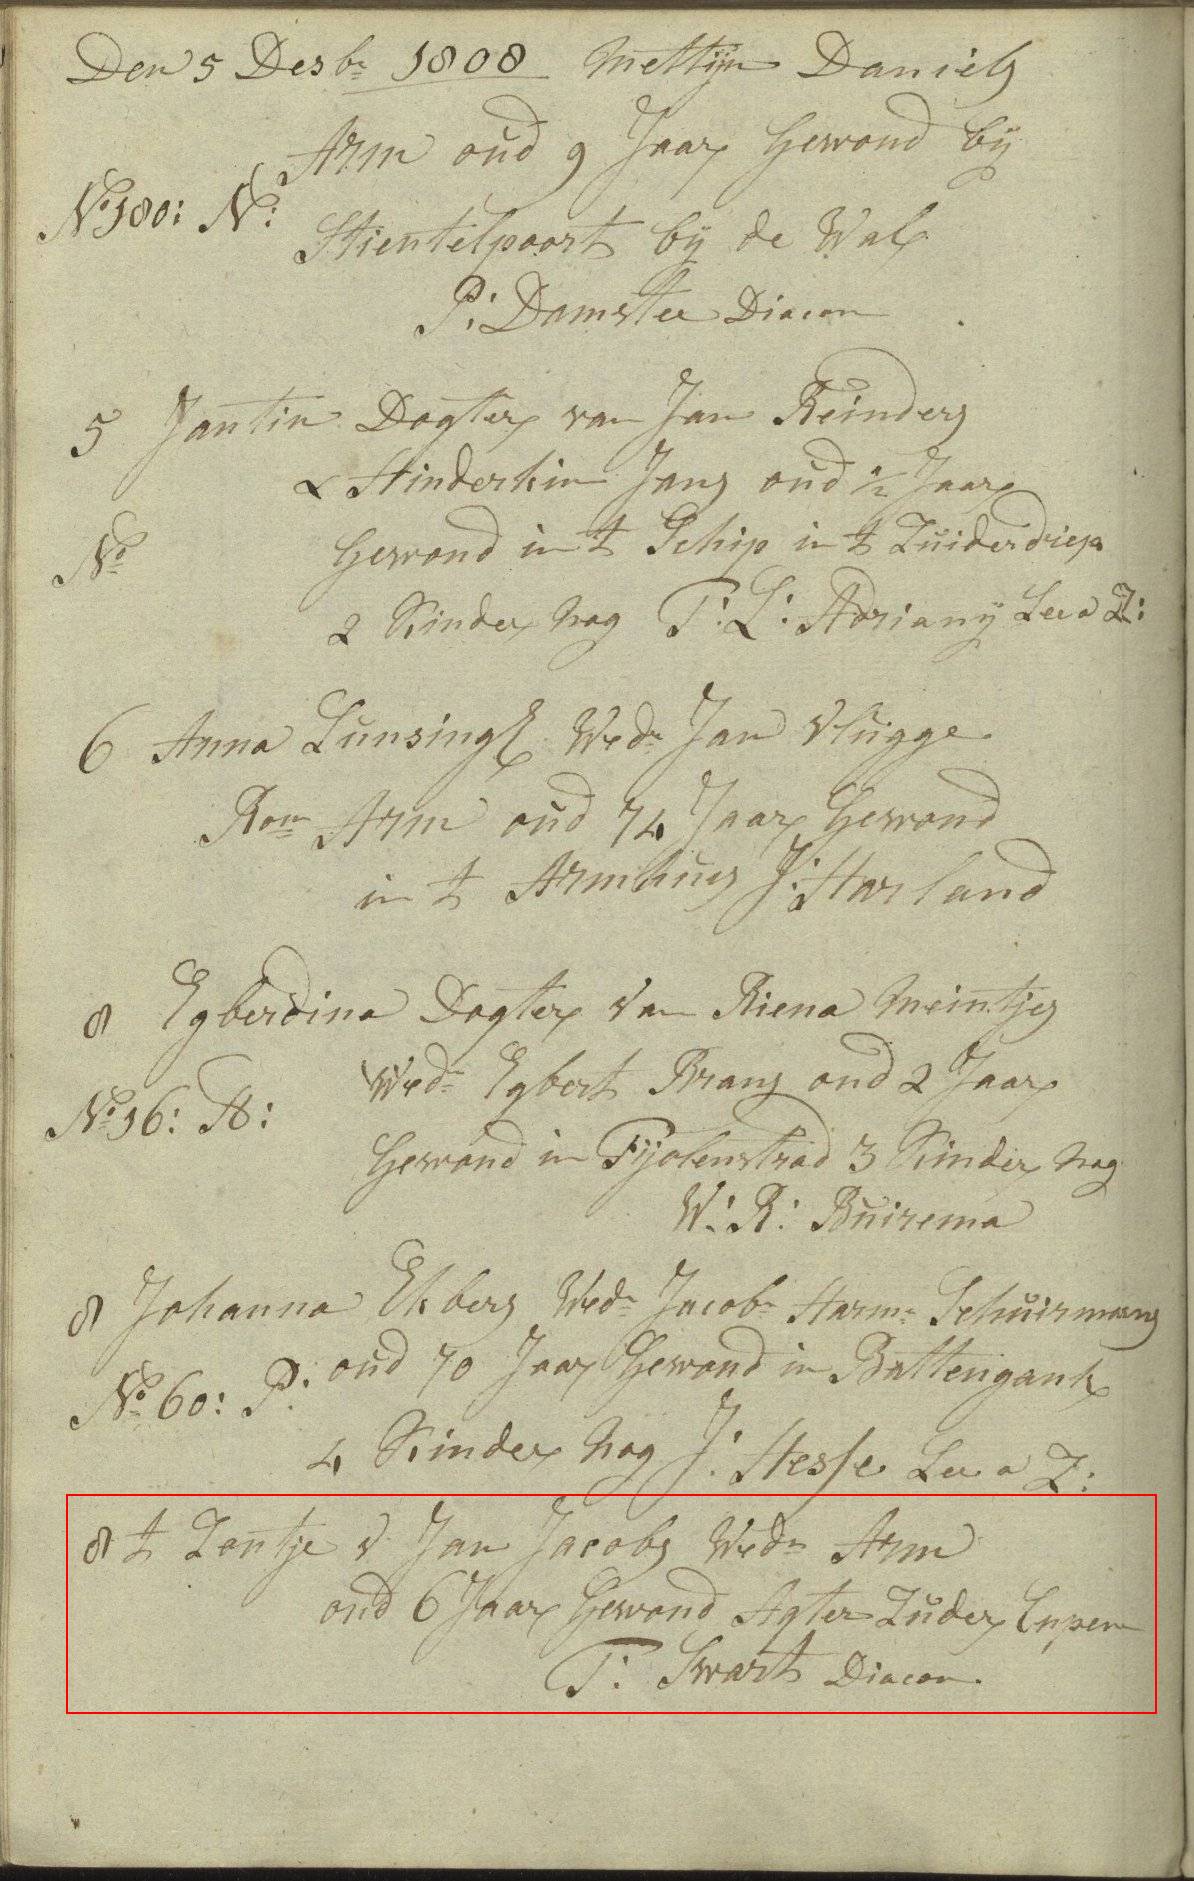 Den 5 Desbr 1808 Mettijn Daniels
Arm oud 9 Jaar Gewond bij
No 180: N:
Stientelpoort bij de Wal
P: Damster Diacon
5 Jantin Dogter van Jan Reinders
& Hinderkin Jans oud 1/2 Jaar
Gewond in t Schip in t Zuiderdiep
No
2 Kinder nog T: L: Adriany Lee a Z:
6 Anna Lunsingh Wedr Jan Vlugge
Rom Arm oud 74 Jaar Gewond
in t Armhuys J: Harland
8 Egberdina Dogter van Riena Meintjes
Wedr Egbert Brans oud 2 Jaar
No 16: A:
Gewond in Fyolenstrad 3 Kinder nog
W: R: Buirema
8 Johanna Ekbers Wedr Jacobs Harms Schuirmans
oud 70 Jaar Gewond in Battengank
No 60: P:
4 Kinder nog J: Hesse Lee a Z:
8 t Zontje v Jan Jacobs Wedr Arm
oud 6 Jaar Gewond Agter Zuder
T: Swart Diacon